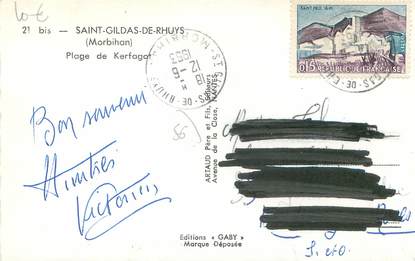 10 €
21 bis — SAINT-GILDAS-DE-RHUYS
(Morbihan)
Plage de Kerfagot
SAINT-PAUL
0,15 RÉPUBLIQUE FRANÇAISE
ST GILDAS-DE-RHUYS
MORBIHAN
18 H
12-6
1963
Bon souvenir
Amitiés
ARTAUD Père et Fils, Éditeurs
Avenue de la Close, NANTES
Editions « GABY »
Marque Déposée
S. et O.